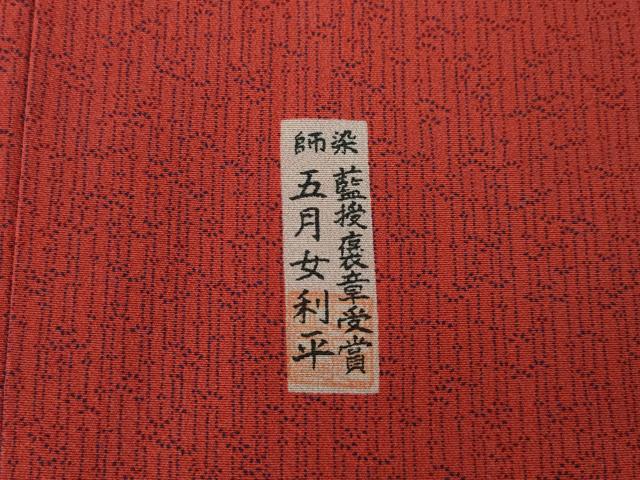 染師
藍授褒章受賞
五月女利平